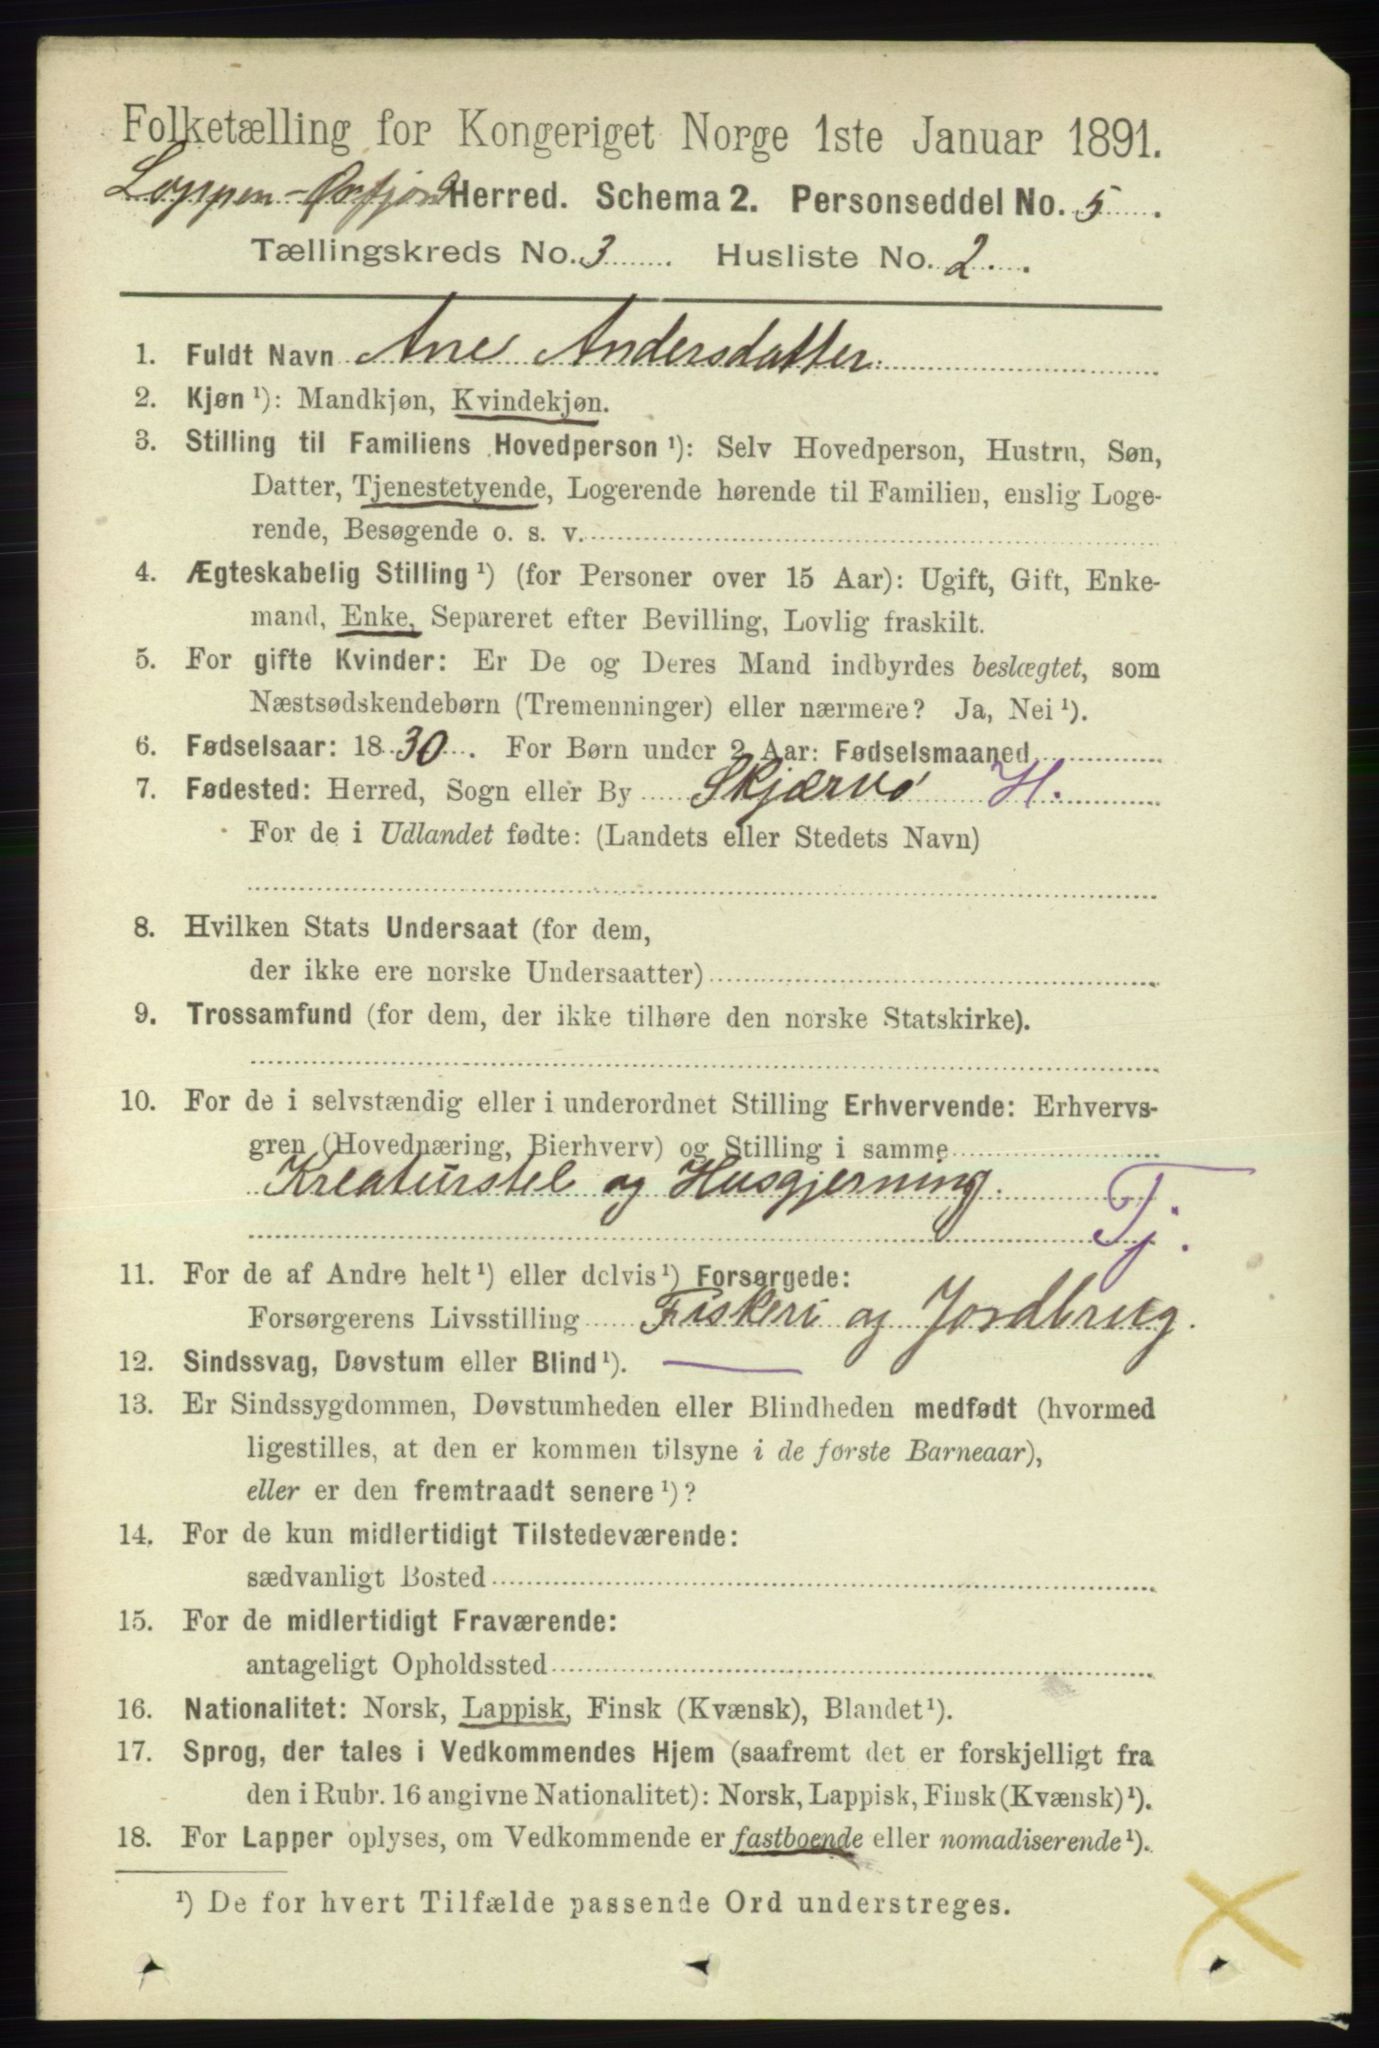 Folketælling for Kongeriget Norge 1ste Januar 1891.
Loppen - Øxfjord Herred. Schema 2. Personseddel No. 5.
Tællingskreds No. 3. Husliste No. 2.
1. Fuldt Navn Ane Andersdatter.
2. Kjøn ¹): Mandkjøn, Kvindekjøn.
3. Stilling til Familiens Hovedperson ¹): Selv Hovedperson, Hustru, Søn,
Datter, Tjenestetyende, Logerende hørende til Familien, enslig Loge-
rende, Besøgende o. s. v.
4. Ægteskabelig Stilling ¹) (for Personer over 15 Aar): Ugift, Gift, Enke-
mand, Enke, Separeret efter Bevilling, Lovlig fraskilt.
5. For gifte Kvinder: Er De og Deres Mand indbyrdes beslægtet, som
Næstsødskendebørn (Tremenninger) eller nærmere? Ja, Nei ¹).
6. Fødselsaar: 1830. For Børn under 2 Aar: Fødselsmaaned
7. Fødested: Herred, Sogn eller By Skjærvø H.
For de i Udlandet fødte: (Landets eller Stedets Navn)
8. Hvilken Stats Undersaat (for dem,
der ikke ere norske Undersaatter)
9. Trossamfund (for dem, der ikke tilhøre den norske Statskirke).
10. For de i selvstændig eller i underordnet Stilling Erhvervende: Erhvervs-
gren (Hovednæring, Bierhverv) og Stilling i samme
Kreaturstel og Husgjerning. Tj.
11. For de af Andre helt ¹) eller delvis ¹) Forsørgede:
Forsørgerens Livsstilling Fiskeri og Jordbrug.
12. Sindssvag, Døvstum eller Blind ¹).
13. Er Sindssygdommen, Døvstumheden eller Blindheden medfødt (hvormed
ligestilles, at den er kommen tilsyne i de første Barneaar),
eller er den fremtraadt senere ¹)?
14. For de kun midlertidigt Tilstedeværende:
sædvanligt Bosted
15. For de midlertidigt Fraværende:
antageligt Opholdssted
16. Nationalitet: Norsk, Lappisk, Finsk (Kvænsk), Blandet ¹).
17. Sprog, der tales i Vedkommendes Hjem (saafremt det er forskjelligt fra
den i Rubr. 16 angivne Nationalitet): Norsk, Lappisk, Finsk (Kvænsk) ¹).
18. For Lapper oplyses, om Vedkommende er fastboende eller nomadiserende ¹).
¹) De for hvert Tilfælde passende Ord understreges.